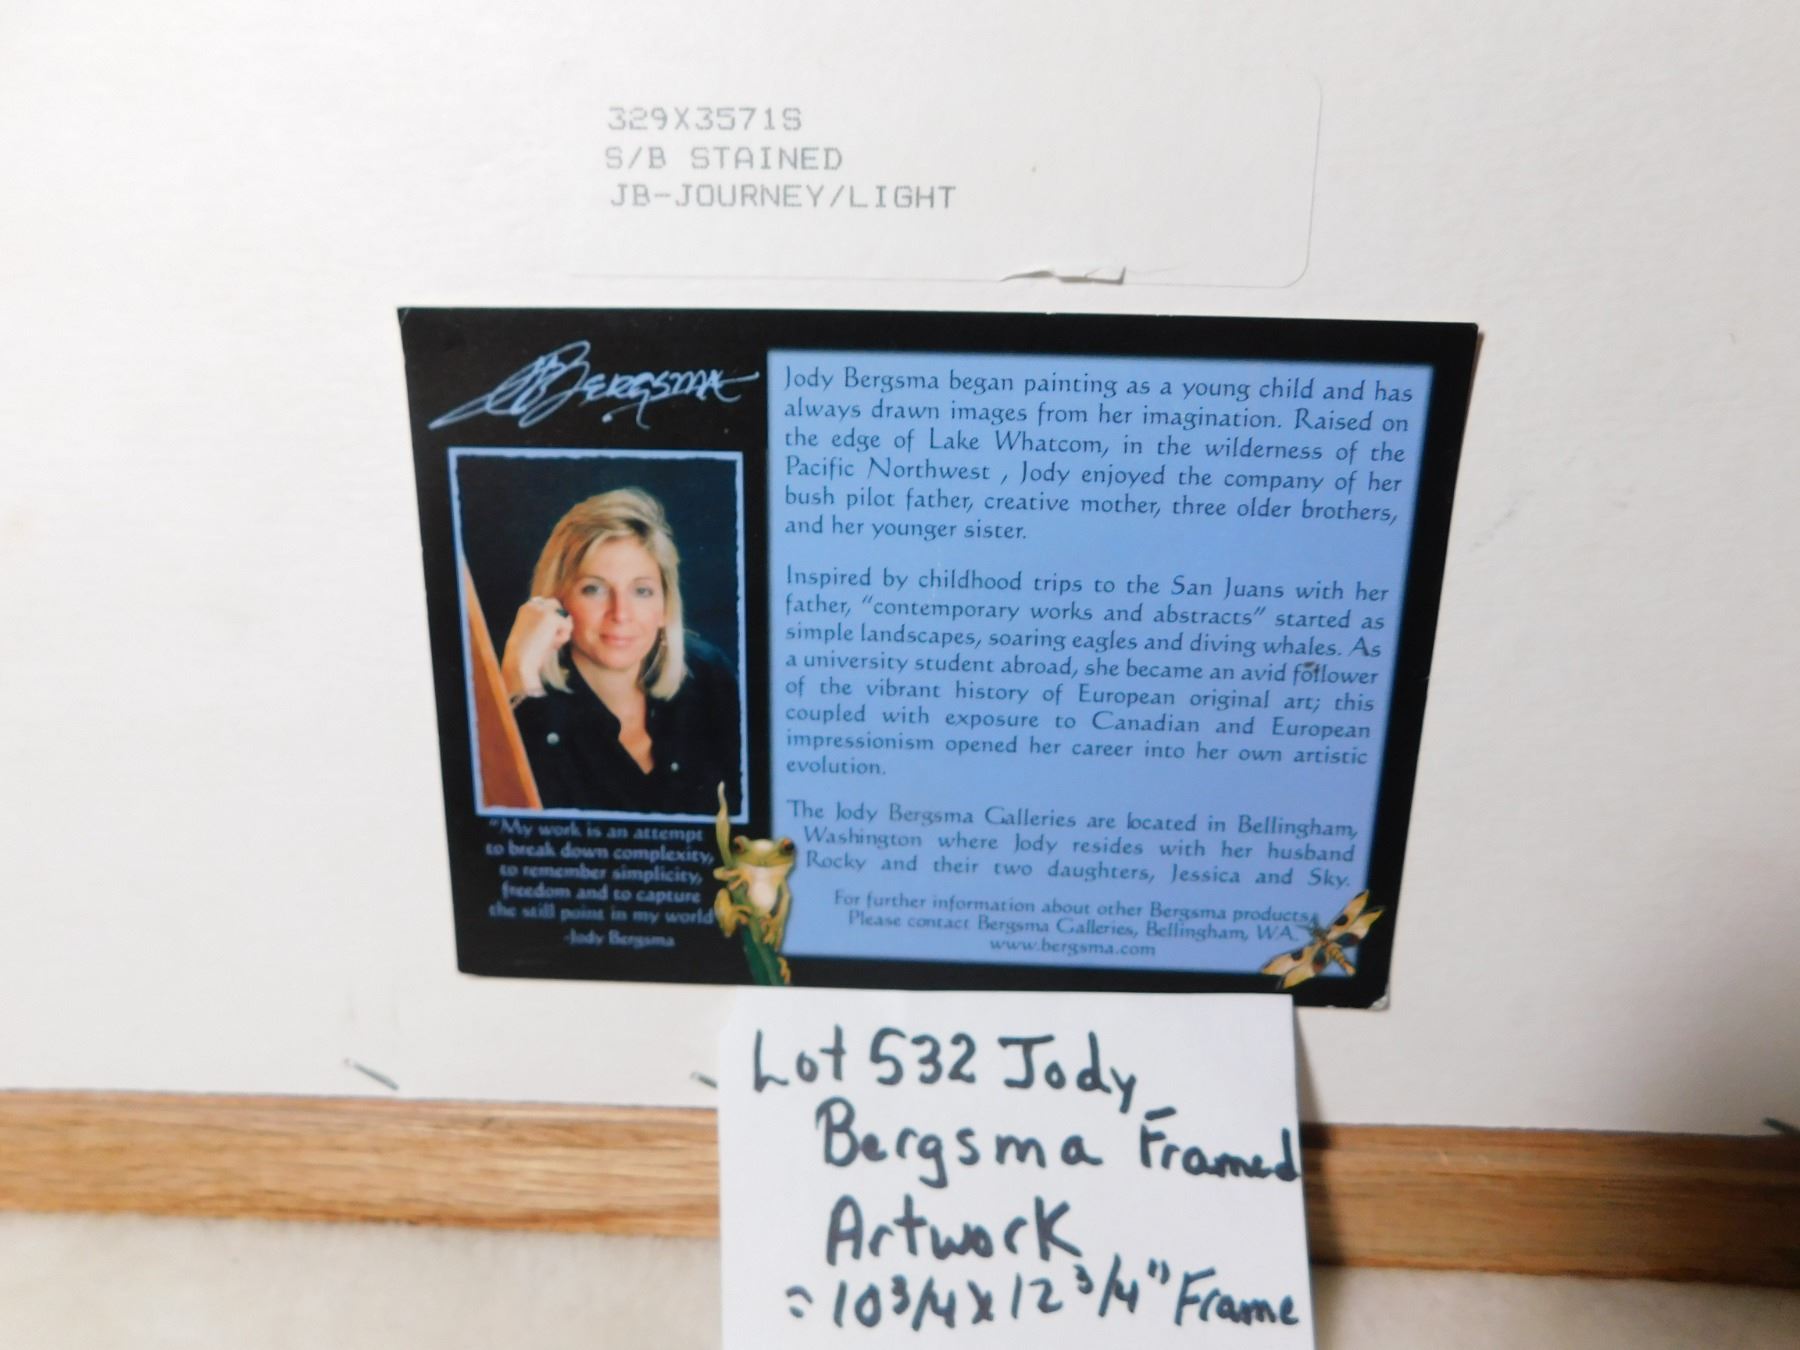 329X3571S
S/B STAINED
JB-JOURNEY/LIGHT
JBergsma
Jody Bergsma began painting as a young child and has
always drawn images from her imagination. Raised on
the edge of Lake Whatcom, in the wilderness of the
Pacific Northwest , Jody enjoyed the company of her
bush pilot father, creative mother, three older brothers,
and her younger sister.
Inspired by childhood trips to the San Juans with her
father, "contemporary works and abstracts" started as
simple landscapes, soaring eagles and diving whales. As
a university student abroad, she became an avid follower
of the vibrant history of European original art; this
coupled with exposure to Canadian and European
impressionism opened her career into her own artistic
evolution.
The Jody Bergsma Galleries are located in Bellingham,
Washington where Jody resides with her husband
Rocky and their two daughters, Jessica and Sky.
For further information about other Bergsma products,
Please contact Bergsma Galleries, Bellingham, WA.
www.bergsma.com
"My work is an attempt
to break down complexity,
to remember simplicity,
freedom and to capture
the still point in my world"
-Jody Bergsma
Lot 532 Jody
Bergsma Framed
Artwork
= 10 3/4 x 12 3/4" Frame